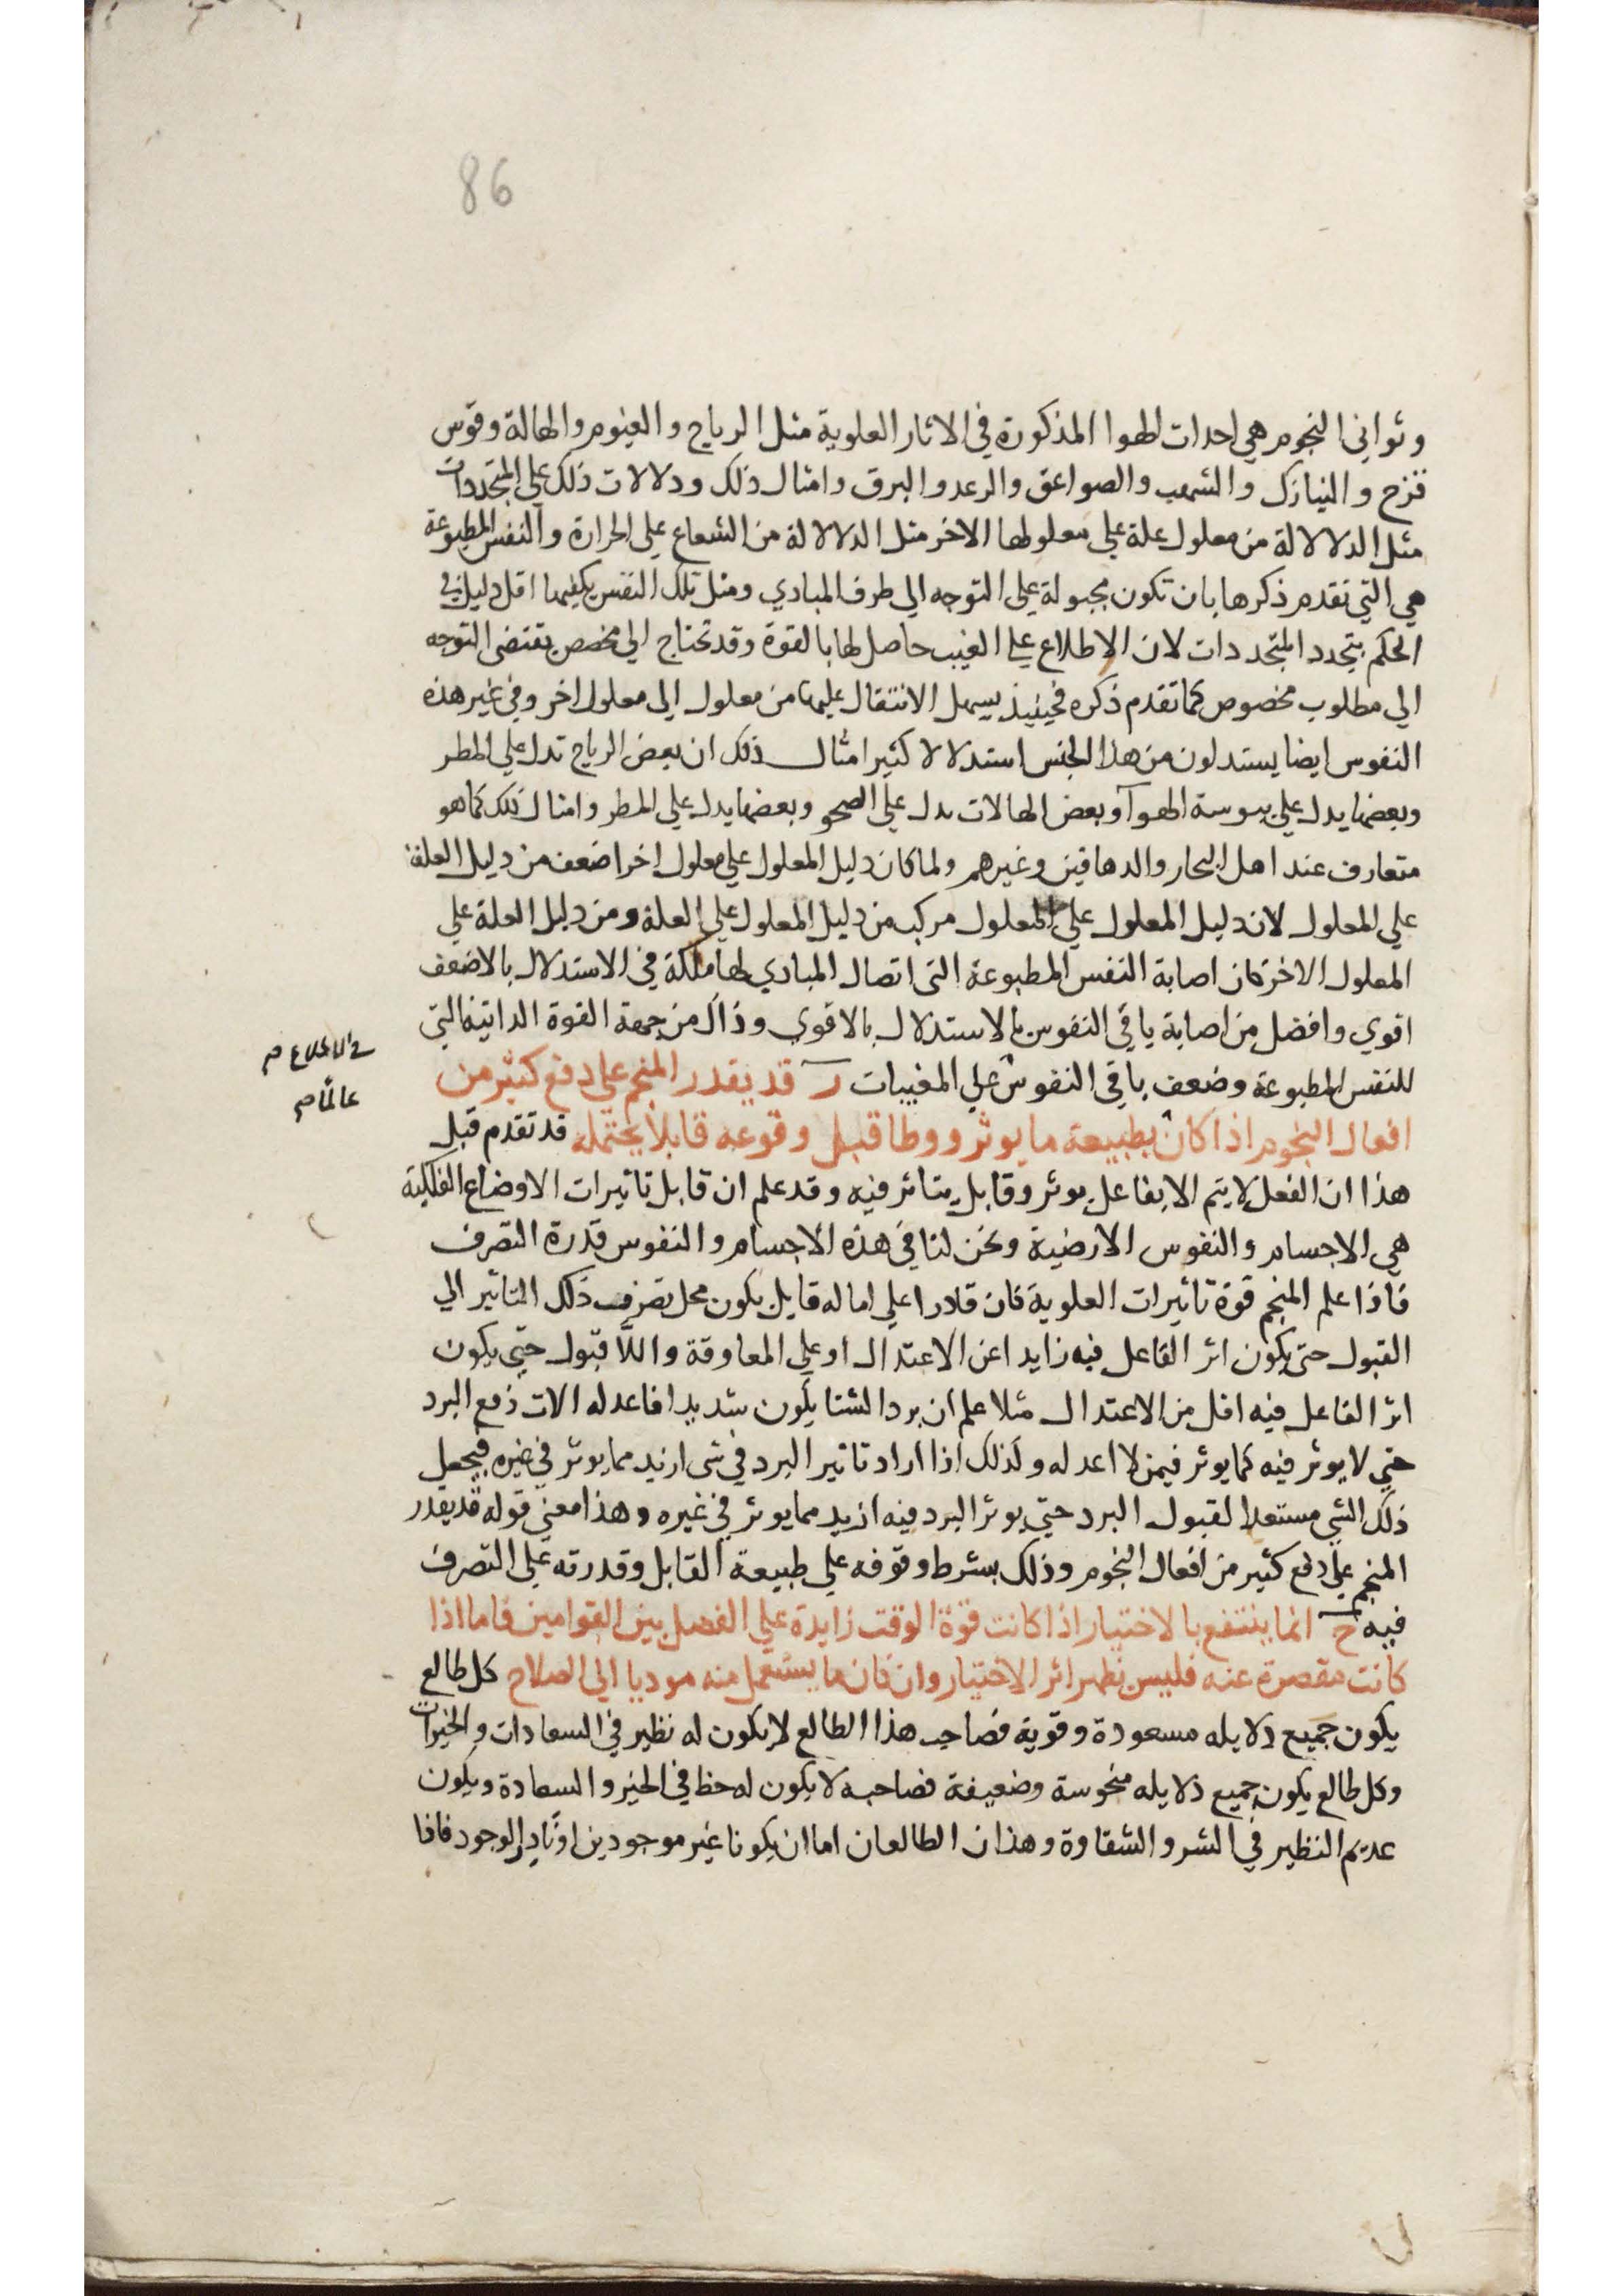 86
وثواني النجوم هي احداث الهوا المذكورة في الاثار العلوية مثل الرياح والغيوم والهالة وقوس
قزح والنيازك والشهب والصواعق والرعد والبرق وامثال ذلك ودلالات ذلك علي المتجددات
مثل الدلالالة من معلول علة علي معلولها الاخر مثل الدلالالة من الشعاع علي الحرارة والنفس المطبوعة
هي التي تقدم ذكرها بان تكون مجبولة علي التوجه الي طرف المبادي ومثل تلك النفس يكفيها اقل دليل في
الحكم بتجدد المتجددات لان الاطلاع علي الغيب حاصل لها بالقوة وقد تحتاج الي مخصص يقتضي التوجه
الي مطلوب مخصوص كما تقدم ذكره فحينيذ يسهل الانتقال عليها من معلول الي معلول اخر وفي غير هذه
النفوس ايضا يستدلون من هذا الجنس استدلالا كثيرا مثال ذلك ان بعض الرياح تدل علي المطر
وبعضها يدل علي يبوسة الهوآ وبعض الهالات يدل علي الصحو وبعضها يدل علي المطر وامثال ذلك كما هو
متعارف عند اهل البحار والدهاقين وغيرهم ولما كان دليل المعلول علي معلول اخر اضعف من دليل العلة
علي المعلول لان دليل المعلول علي المعلول مركب من دليل المعلول علي العلة ومن دليل العلة علي
المعلول الاخر فان اصابة النفس المطبوعة التي اتصال المبادي لها ملكة في الاستدلال بالاضعف
اقوي وافضل من اصابة باقي النفوس بالاستدلال بالاقوي وذاك من جهة القوة الذاتية التي
للنفس المطبوعة وضعف باقي النفوس علي المغيبات ر قد يقدر المنجم علي دفع كثير من
في الاطلاع صح
افعال النجوم اذا كان بطبيعة ما يوثر ووطا قبل وقوعه قابلا يحتمله قد تقدم قبل
عالما صح
هذا ان الفعل لا يتم الا بفاعل يوثر وقابل يتاثر فيه وقد علم ان قابل تاثيرات الاوضاع الفلكية
هي الاجسام والنفوس الارضية ونحن لنا في هذه الاجسام والنفوس قدرة التصرف
فاذا علم المنجم قوة تاثيرات العلوية فان قادرا علي امالة قابل يكون محل تصرف ذلك التاثير الي
القبول حتي يكون اثر الفاعل فيه زايدا عن الاعتدال او علي المعاوقة واللا قبول حتي يكون
اثر الفاعل فيه اقل من الاعتدال مثلا علم ان برد الشتا يكون شديدا فاعد له الات دفع البرد
حتي لا يوثر فيه كما يوثر فيمن لا اعد له وكذلك اذا اراد تاثير البرد في شي ازيد مما يوثر في غيره فيجعل
ذلك الشي مستعدا لقبول البرد حتي يوثر البرد فيه ازيد مما يوثر في غيره وهذا معني قوله قد يقدر
المنجم علي دفع كثير من افعال النجوم وذلك بشرط وقوفه علي طبيعة القابل وقدرته علي التصرف
فيه ح انما ينتفع بالاختيار اذا كانت قوة الوقت زايدة علي الفصل بين القوامين فاما اذا
كانت مقصرة عنه فليس يظهر اثر الاختيار وان كان ما يستعمل منه موديا الي الصلاح كل طالع
يكون جميع دلايله مسعودة وقوية فصاحب هذا الطالع لا يكون له نظير في السعادات والخيرات
وكل طالع يكون جميع دلايله منحوسة وضعيفة فصاحبه لا يكون له حظ في الخير والسعادة ويكون
عديم النظير في الشر والشقاوة وهذان الطالعان اما ان يكونا غير موجودين او نادر الوجود فاذا